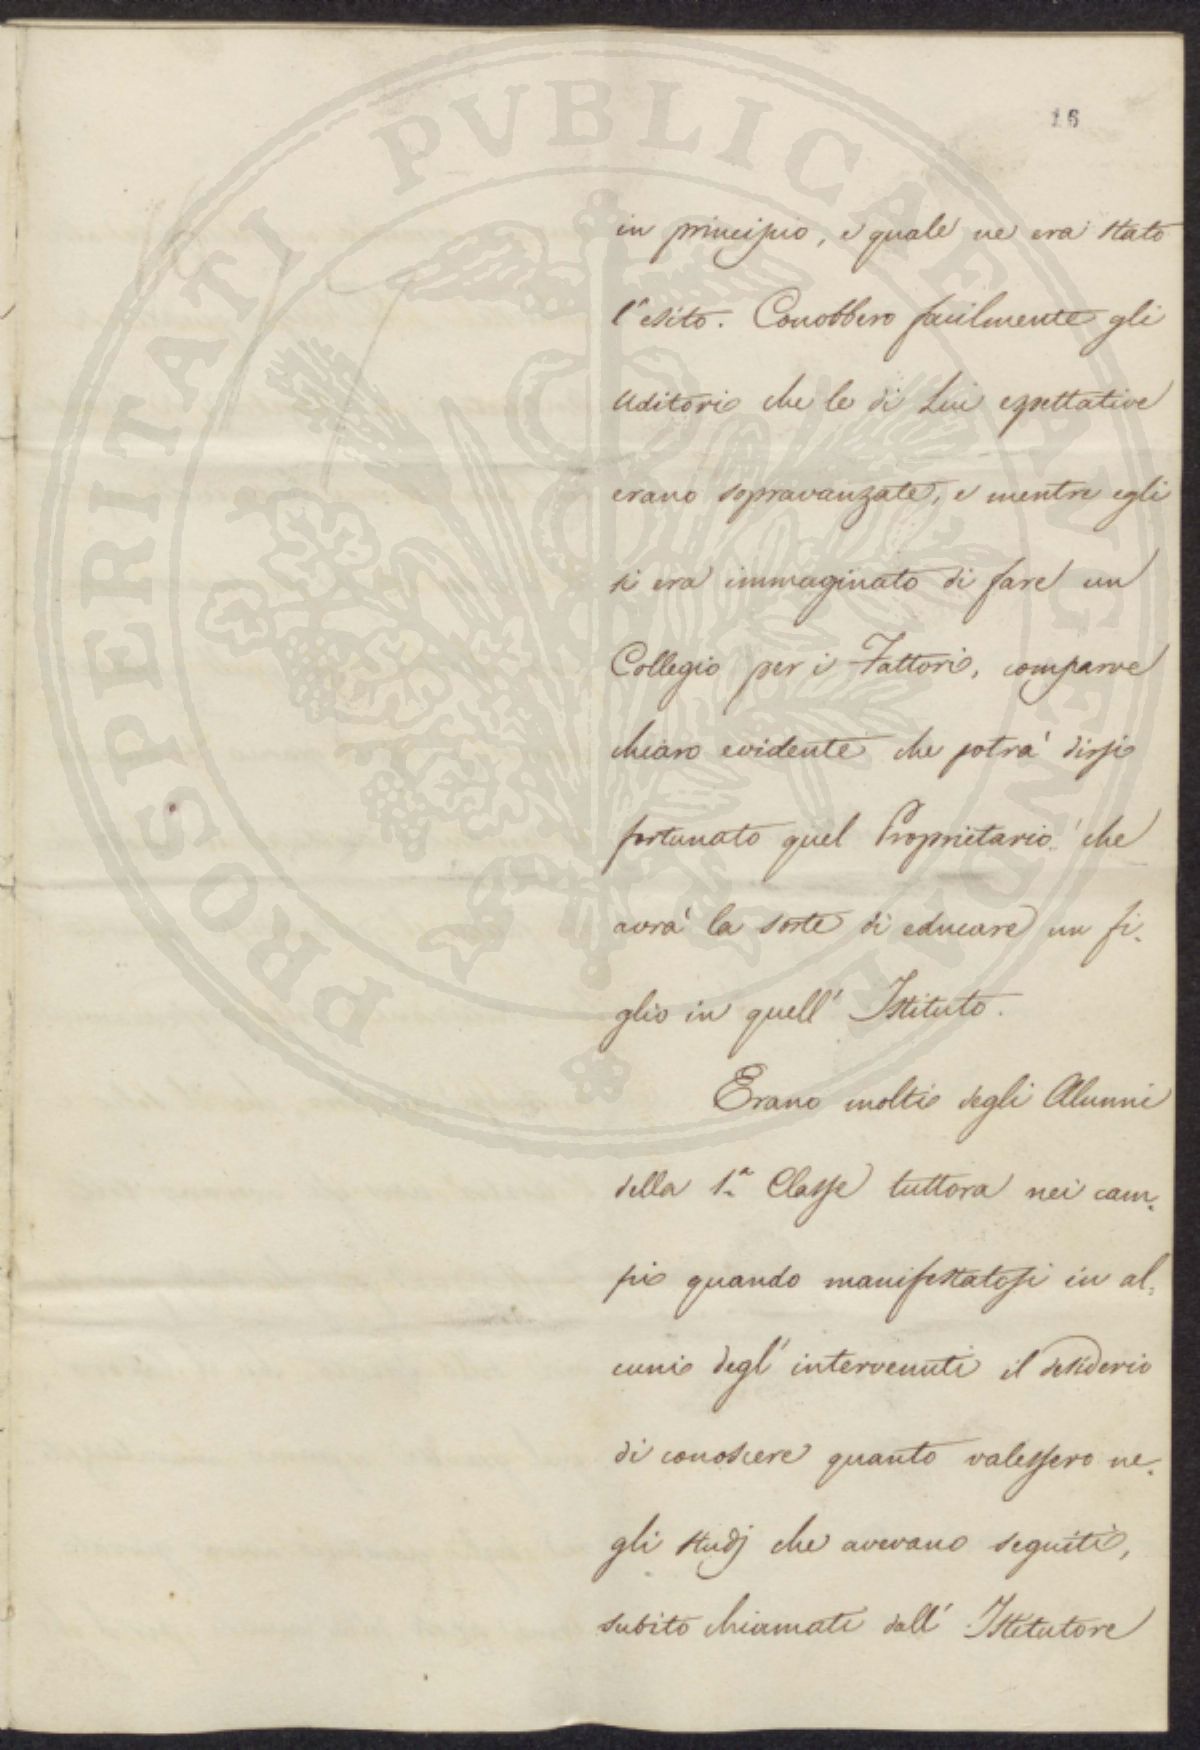 16
in principio, e quale ne era stato
l'esito. Conobbero facilmente gli
Uditori che le di Lui espettative
erano sopravanzate, e mentre egli
si era immaginato di fare un
Collegio per i Fattori, comparve
chiaro evidente che potrà dirsi
fortunato quel Proprietario che
avrà la sorte di educare un fi-
glio in quell' Istituto.
Erano molti degli Alunni
della 1.a Classe tuttora nei cam-
pi quando manifestatosi in al-
cuni degl' intervenuti il desiderio
di conoscere quanto valessero ne-
gli studj che avevano seguiti,
subito chiamati dall' Istitutore
PROSPERITATI PVBLICAE AVGENDAE